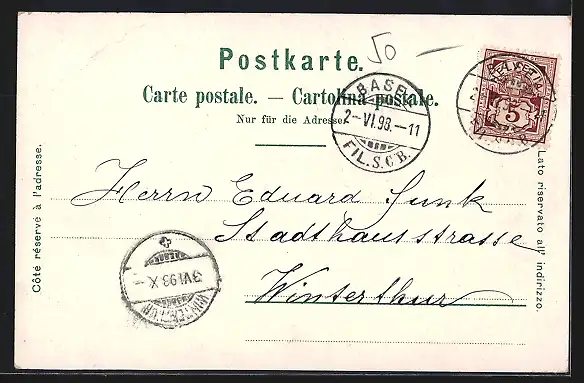 50 —
Postkarte.
Carte postale. — Cartolina postale.
Nur für die Adresse.
BASEL
2-VI.98.-11
FIL.S.C.B.
5
Côté réservé à l'adresse.
Lato riservato all' indirizzo.
Herrn Eduard Junk
Stadthausstrasse
Winterthur
3.VI.98.X
WINTERTHUR